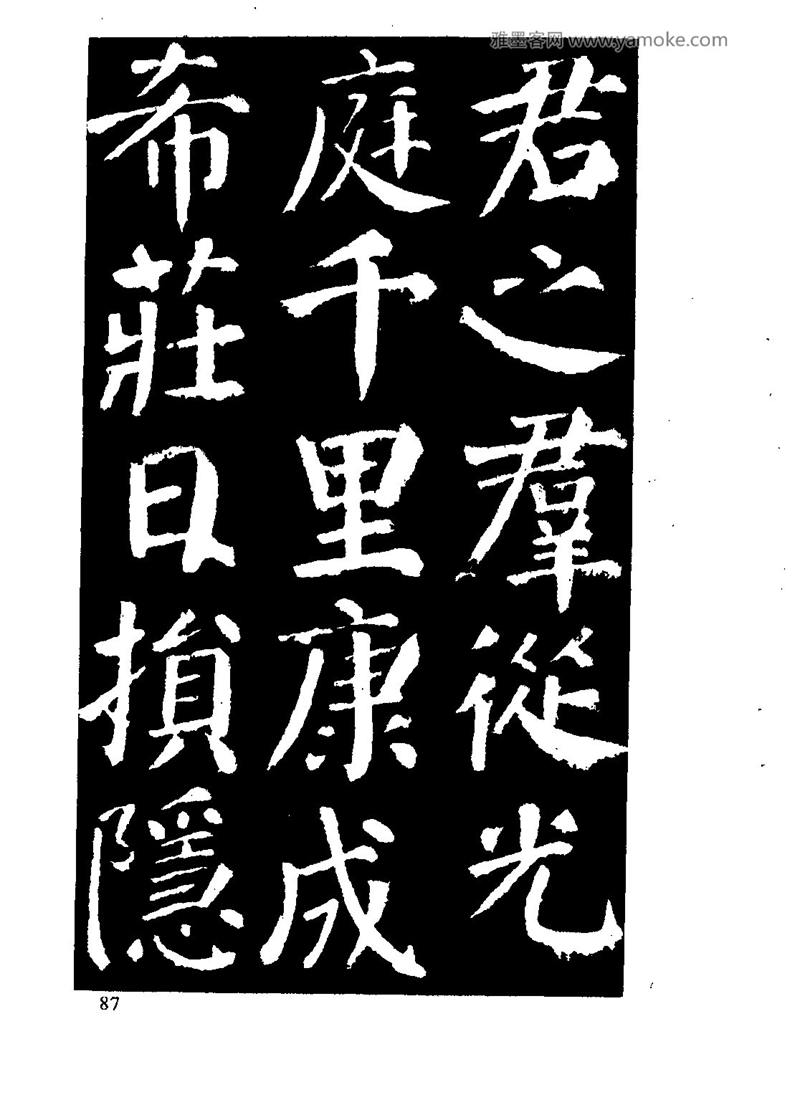 雅墨客网 www.yamoke.com
君之羣從光
庭千里康成
希莊日損隱
87